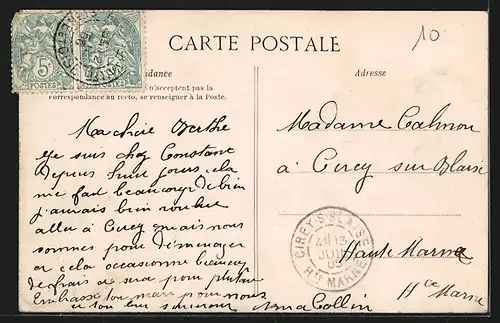 10
CARTE POSTALE
5c
POSTES
POSTES
Correspondance
n'acceptent pas la
correspondance au recto, se renseigner à la Poste.
Adresse
Ma chère Berthe
Je suis chez Constant
depuis huit jours cela
me fait beaucoup de bien
j'aurais bien voulue
aller à Cirey mais nous
sommes pour déménager
et cela occasionne beaucoup
de frais ce sera pour plus tard
Embrasse ton mari pour nous
et ton
Anna Collin
Madame Calmon
à Cirey sur Blaise
Haute Marne
Hce Marne
CIREY-S-BLAISE
13
JUIL
Hte MARNE